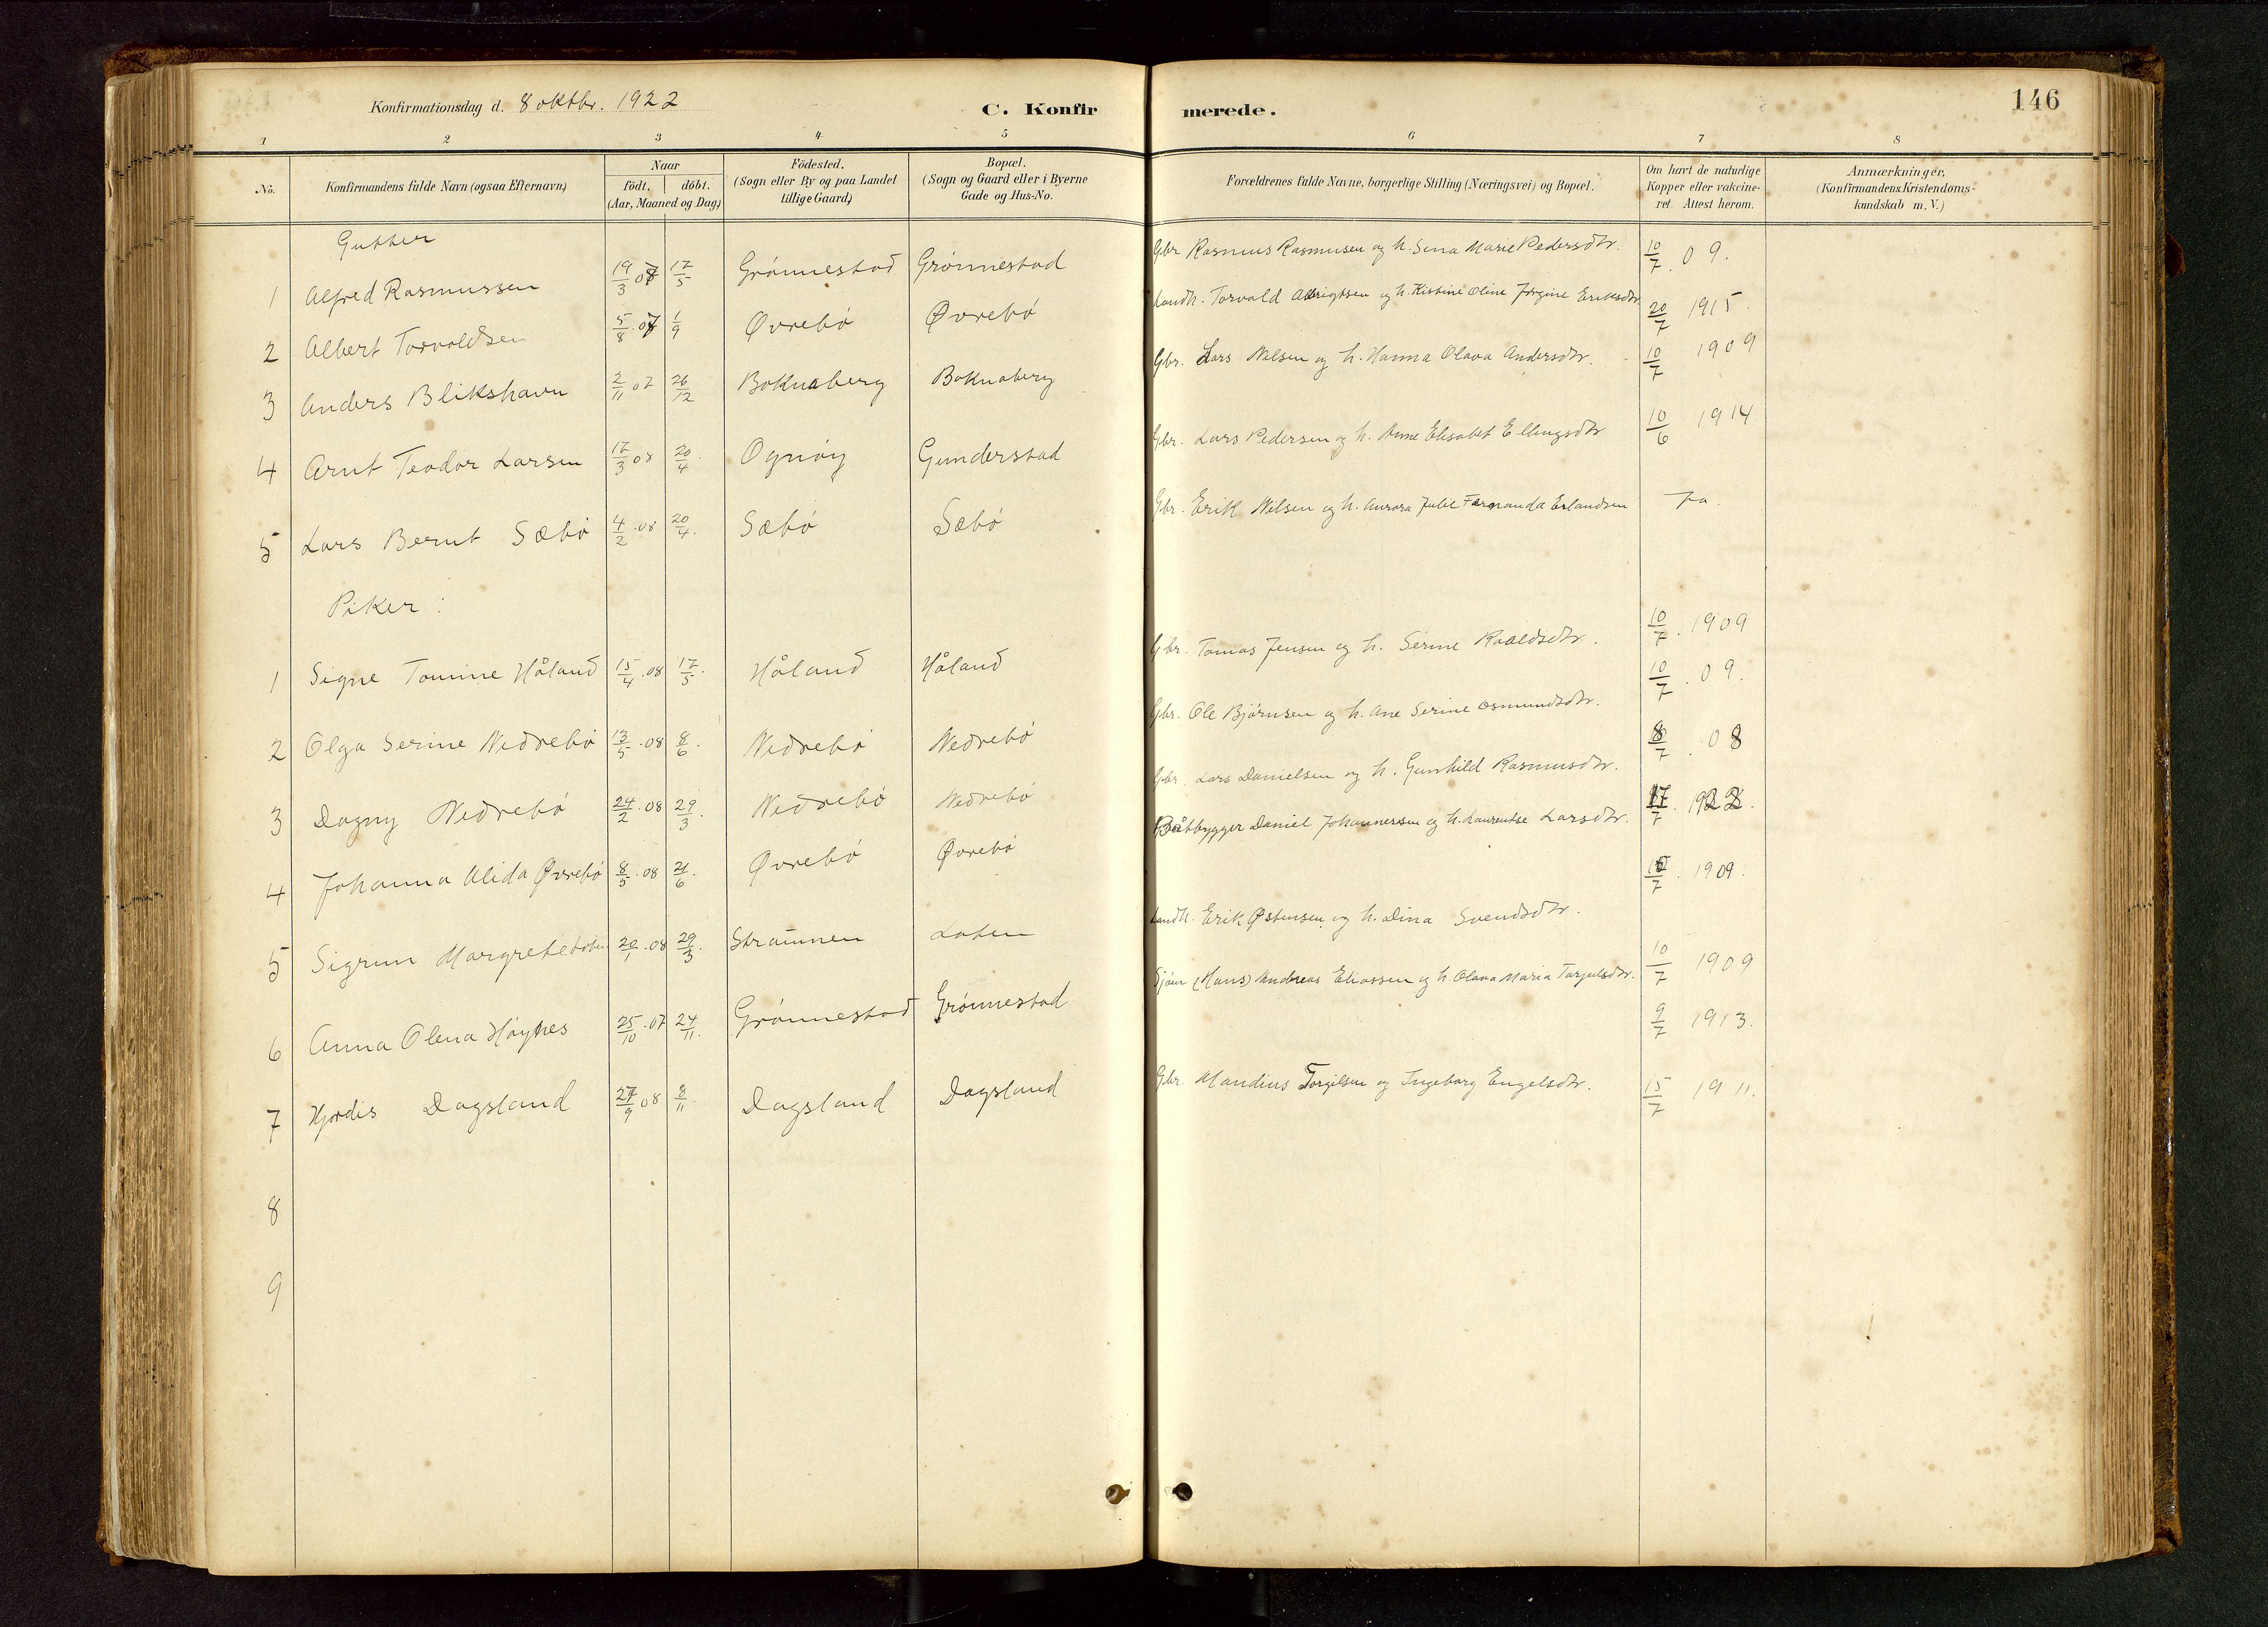 Konfirmationsdag d. 8 oktbr. 1922 C. Konfirmerede. 146
1 2 3 4 5 6 7 8
No. Konfirmandens fulde Navn (ogsaa Efternavn) Naar födt, döbt. (Aar, Maaned og Dag) Födested. (Sogn eller By og paa Landet tillige Gaard) Bopæl. (Sogn og Gaard eller i Byerne Gade og Hus-No. Forældrenes fulde Navne, borgerlige Stilling (Næringsvei) og Bopæl. Om havt de naturlige Kopper eller vakcineret. Attest herom. Anmærkninger, (Konfirmandens Kristendomskundskab m. V.)
Gutter
1 Alfred Rasmussen 19/3 08 17/5 Grønnestad Grønnestad Gbr Rasmus Rasmusen og h. Sena Marie Pedersdtr. 10/7. 09.
2 Albert Torvaldsen 5/8. 07 1/9 Øvrebø Øvrebø Landh. Torvald Albrigtsen og h. Kistine Oline Jørgine Eriksdtr 20/7 1915.
3 Anders Blikshavn 2/11 07 26/12 Boknaberg Boknaberg Gbr. Lars Nilsen og h. Hanna Olava Andersdtr. 10/7 1909
4 Arnt Teodor Larsen 17/3 08 20/4. Ognøy Gunderstad Gbr. Lars Pedersen og h. Anne Elisabet Ellingsdtr 10/6 1914
5 Lars Bernt Sæbø 4/2.08 20/4. Sæbø Sæbø Gbr. Erik Nilsen og h. Aurora Julie Fernanda Erlandsen ja.
Piker:
1 Signe Tomine Håland 15/4.08 17/5. Håland Håland Gbr. Tomas Jensen og h. Serine Roaldsdtr. 10/7. 1909
2 Olga Serine Nedrebø 13/5.08 8/6. Nedrebø Nedrebø Gbr. Ole Bjørnsen og h. Ane Serine Osmundsdtr. 10/7. 09.
3 Dagny Nedrebø 24/2.08 29/3. Nedrebø Nedrebø Gbr. Lars Danielsen og h. Gunhild Rasmusdtr. 8/7. 08
4 Johanna Alida Øvrebø 8/5.08 21/6. Øvrebø Øvrebø Båtbygger Daniel Johannessen og h. Laurentse Larsdtr. 17/7. 1922.
5 Sigrun Margrete Loten 20/1.08 29/3. Straumen Loten Landh. Erik Østensen og h. Dina Svendsdtr. 10/7. 1909.
6 Anna Olena Høynes 25/10.07 24/11. Grønnestad Grønnestad Sjøm (Hans) Andreas Eliassen og h. Olava Maria Torjulsdtr. 10/7 1909
9/7 1913.
7 Hjørdis Dagsland 27/9 08 8/11. Dagsland Dagsland Gbr. Mandius Torgilsen og Ingeborg Engelsdtr. 15/7 1911.
8
9